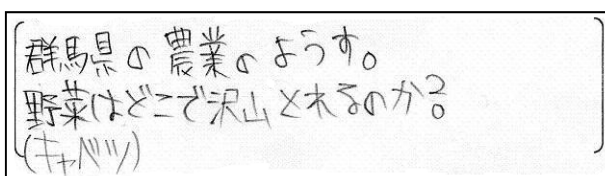 群馬県の農業のようす。
野菜はどこで沢山とれるのか?
(キャベツ)